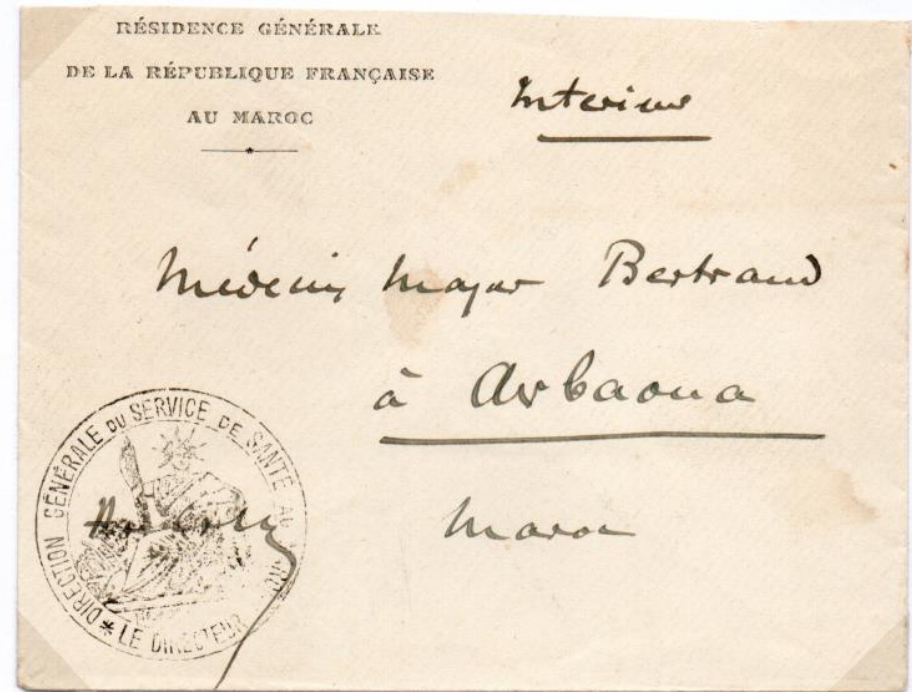 RÉSIDENCE GÉNÉRALE
DE LA RÉPUBLIQUE FRANÇAISE
AU MAROC
Interieur
Médecin Major Bertrand
à Arbaoua
Maroc
DIRECTION GÉNÉRALE DU SERVICE DE SANTÉ AU MAROC
* LE DIRECTEUR